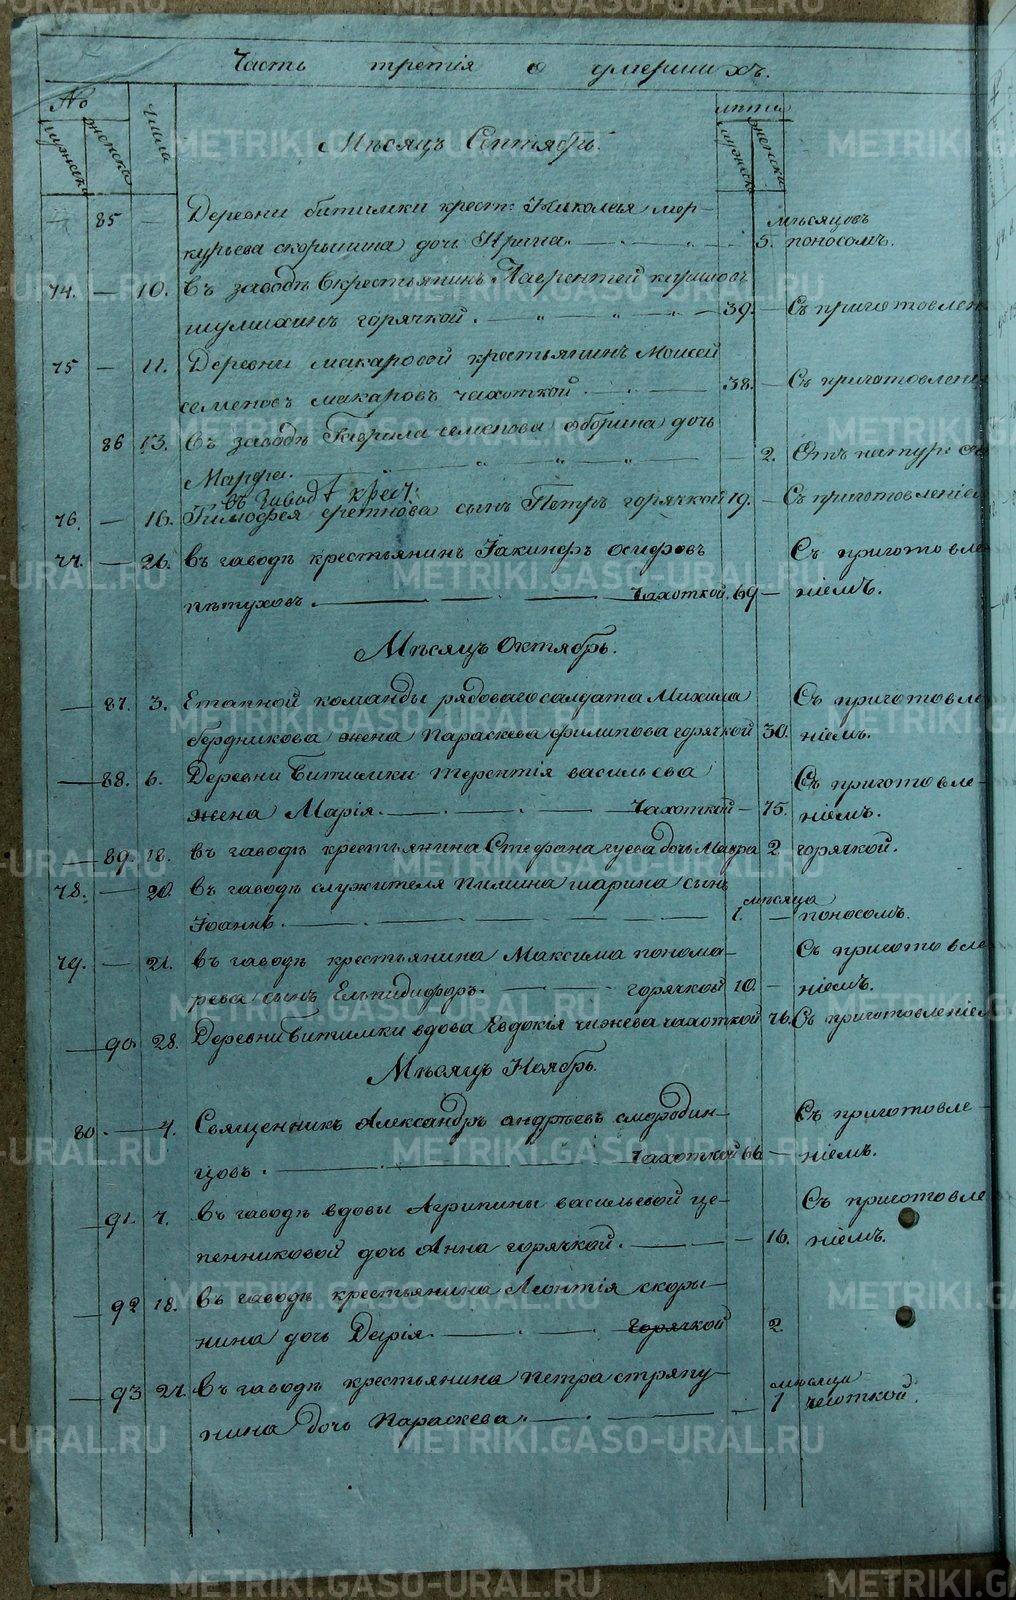 Часть третія о умершихъ.
No числа лѣта
мужеска женска мужеска женска
Мѣсяцъ Сентябрь.
85 — Деревни битимки крест: Николая мер-
мѣсяцовъ
курьева скорынина дочь Ирина. 5. поносомъ.
74. — 10. въ заводѣ крестьянинъ Лаврентей кириловъ
шулинъ горячкой. 39. — Съ приготовлен
75 — 11. Деревни макаровой крестьянинъ Моисей
семеновъ макаровъ чахоткой. 38. — Съ приготовлени
86 13. Съ заводѣ Гаврила семенова оборина дочь
Марфа. — 2. Отъ натур:
въ завод крест:
76. — 16. Тимофея сретнова сынъ Петръ горячкой 19. — Съ приготовленіем
77. — 26. въ заводѣ крестьянинъ Іакинфъ осиповъ Съ приготовле
пѣтуховъ. чахоткой. 69 — ніемъ.
Мѣсяцъ Октябрь.
— 87. 3. Етапной команды рядоваго солдата Михаила Съ приготовле
бердникова жена Параскева филипова горячкой 30. ніемъ.
— 88. 6. Деревни битимки терентія васильева Съ приготовле-
жена Марія. чахоткой — 75. ніемъ.
— 89. 18. въ заводѣ крестьянина Стефана гуева дочь Мавра 2 горячкой.
78. — 20. въ заводѣ служителя пимина шарина сынъ
мѣсяца
Іоаннъ. 1. — поносомъ.
79. — 21. въ заводѣ крестьянина Максима понома- Съ приготовле
рева сынъ Елпидифоръ. горячкой 10. — ніемъ.
— 90. 28. Деревни битимки вдова Евдокія чижева чахоткой 76. Съ приготовленіем
Мѣсяцъ Ноябрь.
80. — 4. Священникъ Александръ андреевъ смородин- Съ приготовле-
цовъ. чахоткой 66 — ніемъ.
— 91. 7. въ заводѣ вдовы Агрипины васильевой це- Съ приготовле
пенниковой дочь Анна горячкой. — 16. ніемъ.
— 92 18. въ заводѣ крестьянина Леонтія скоры-
нина дочь Дарія. горячкой 2
— 93 27. въ заводѣ крестьянина петра стряпу-
мѣсяца
нина дочь параскева. — 1 чахоткой.
METRIKI.GASO-URAL.RU